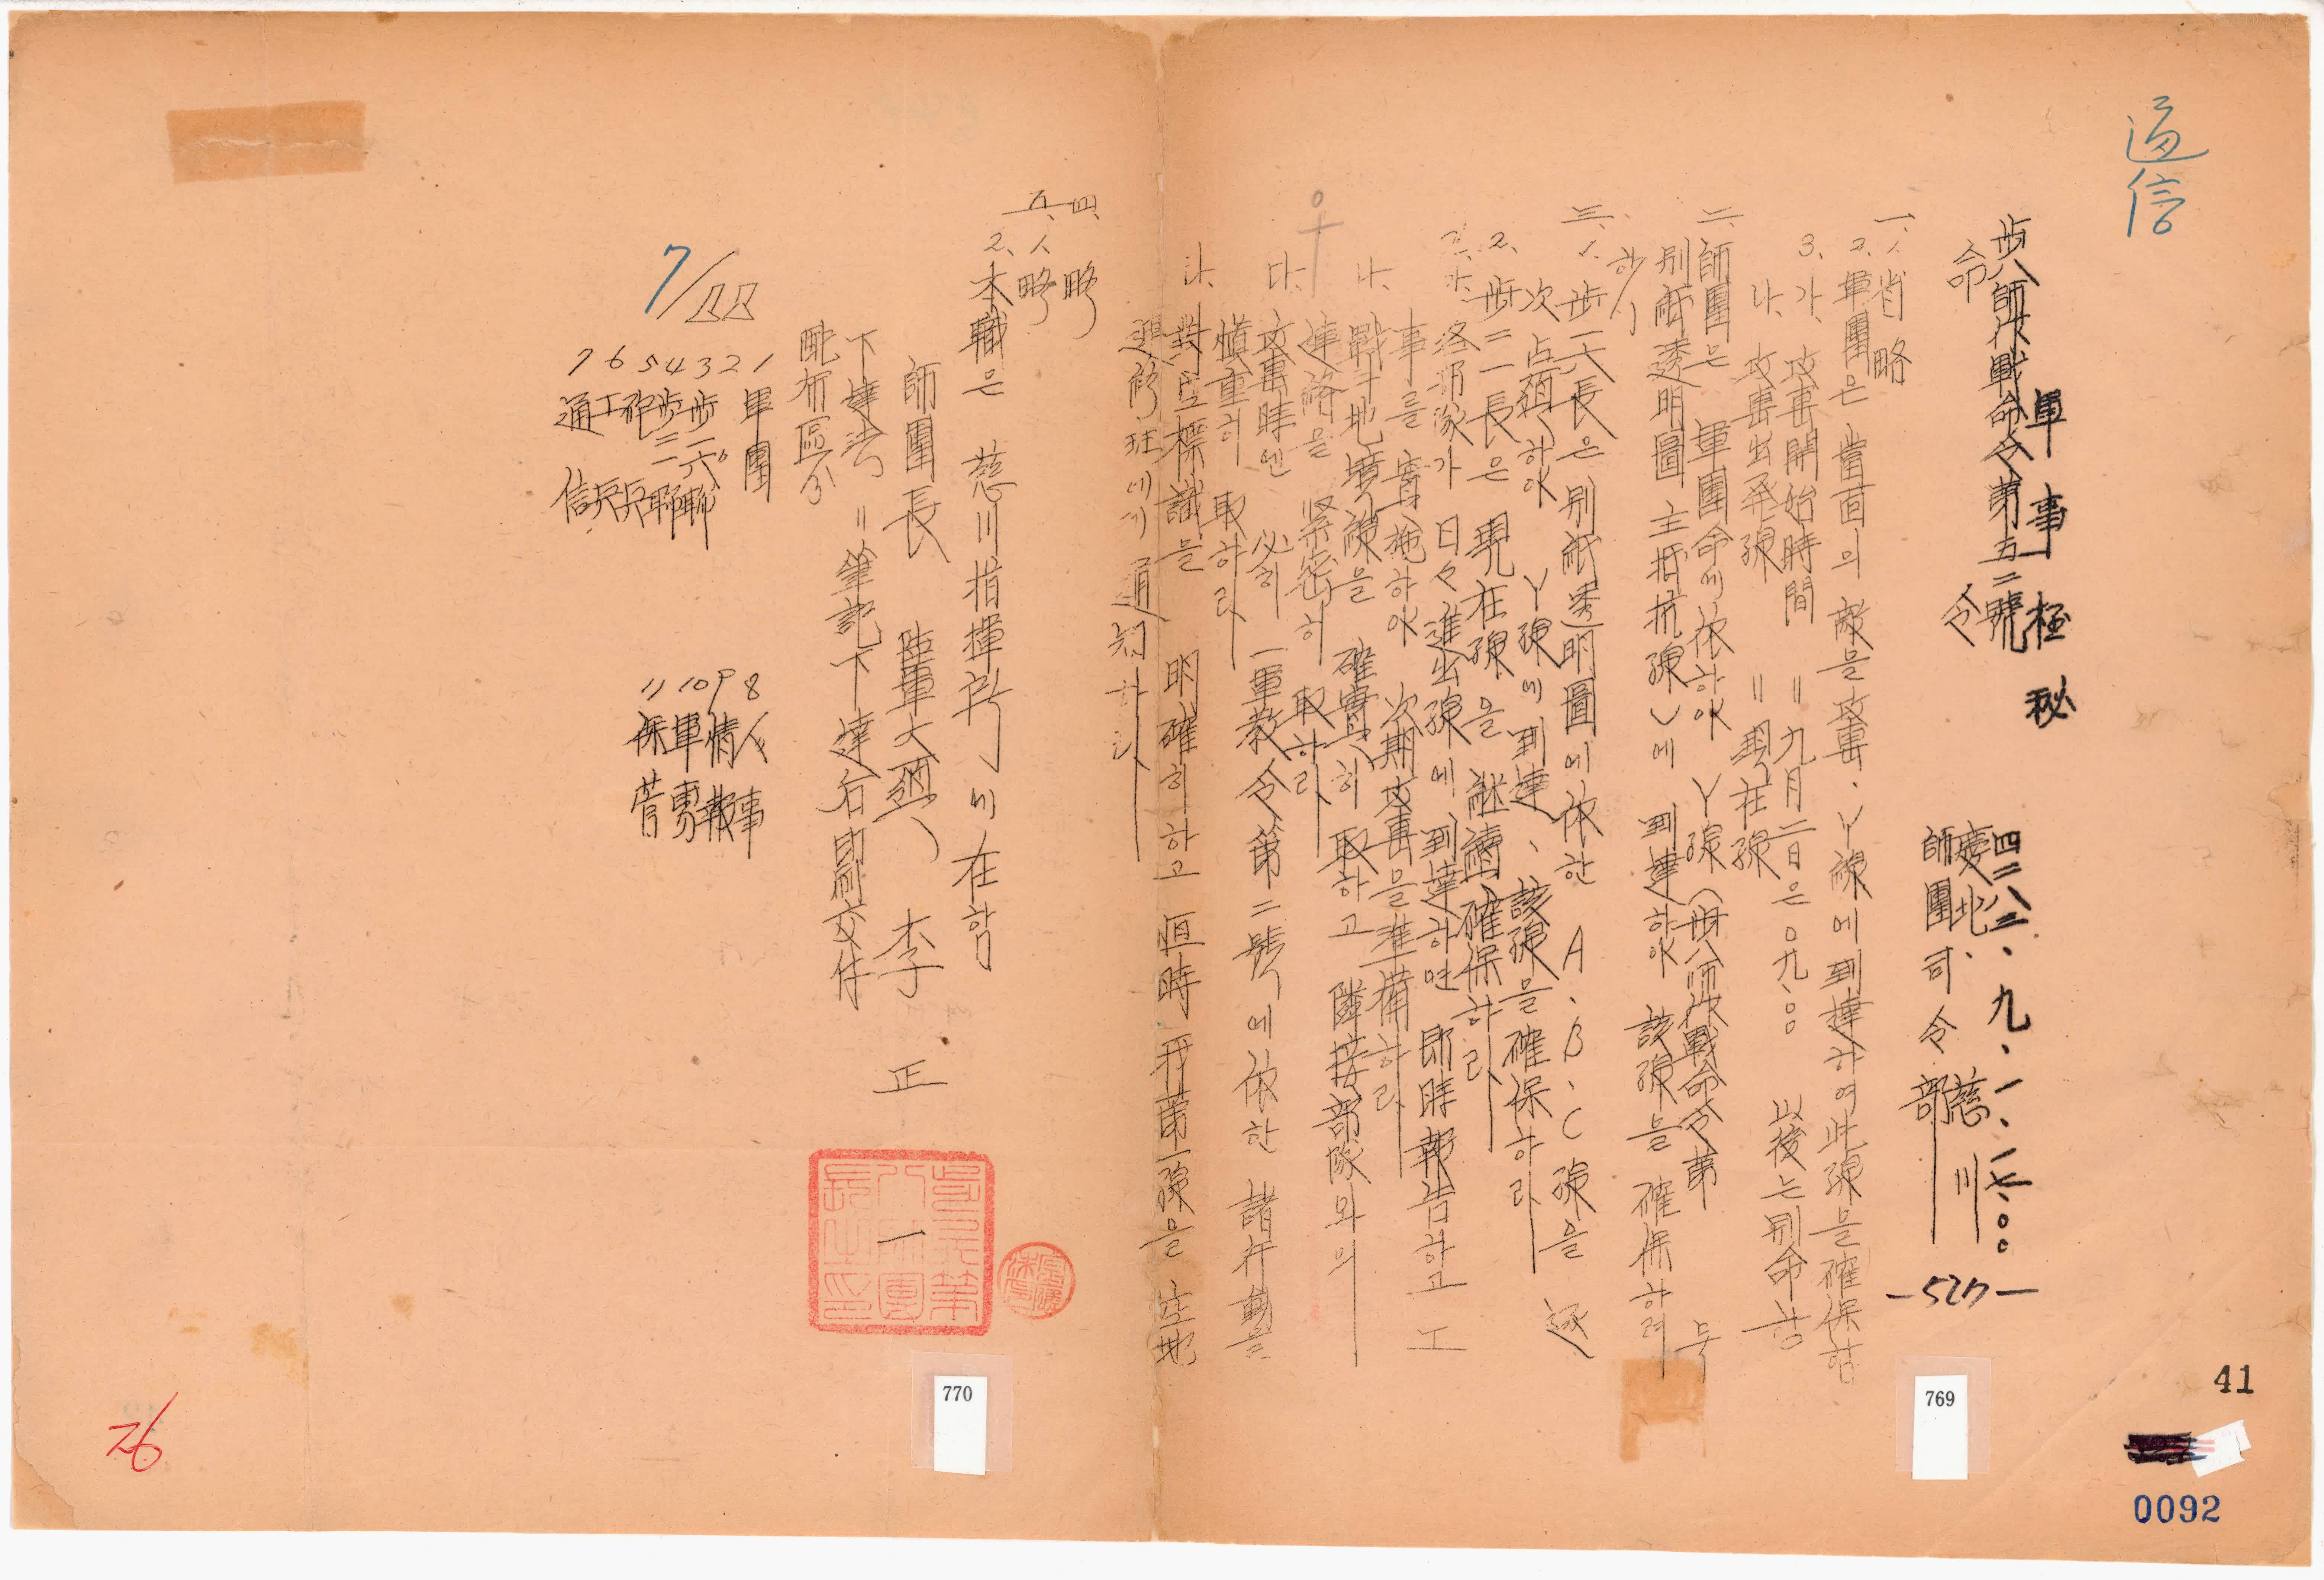 通信
軍事極秘
步八師作戰命令第五二號
命令
四二八三.九.一.一七.〇〇
慶北 慈川
師團司令部
-527-
一、1. 省略
2. 軍團은 當面의 敵을 攻擊. Y線에 到達하여 此線을 確保함
3. 가. 攻擊開始時間 = 九月二日은 〇九.〇〇 以後는 別命함
나. 攻擊出発線 = 現在線
二、師團은 軍團命에 依하야 Y線(步八師作戰命令第 号
別紙透明圖 主抵抗線)에 到達하야 該線을 確保하려
함
三、1. 步一六長은 別紙透明圖에 依한 A.B.C線을 逐
次占領하야 Y線에 到達、該線을 確保하라
2. 步二一長은 現在線을 継續確保하라
3. 가. 各部隊가 日々進出線에 到達하면 即時報告하고 工
事를 實施하야 次期攻擊을 準備하라
나. 戰斗地境線을 確實히 取하고 隣接部隊와의
連絡을 緊密히 取하라
다. 攻擊時엔 必히 一軍敎令第二號에 依한 諸行動을
愼重히 取하라
라. 對空標識을 明確히하고 恒時 我第一線을 空地
連絡班에게 通知하라
四、略
五、1. 略
2. 本職은 慈川指揮所에 在함
師團長 陸軍大領 李 正 一
下達法 = 筆記下達 后 印刷交付
配布區分
7/22
1 軍團
2
3 步一六聯
4 步二一聯
5 砲兵
6 工兵
7 通信
8 人事
9 情報
10 軍需
11 保管
770
769
41
0092
26